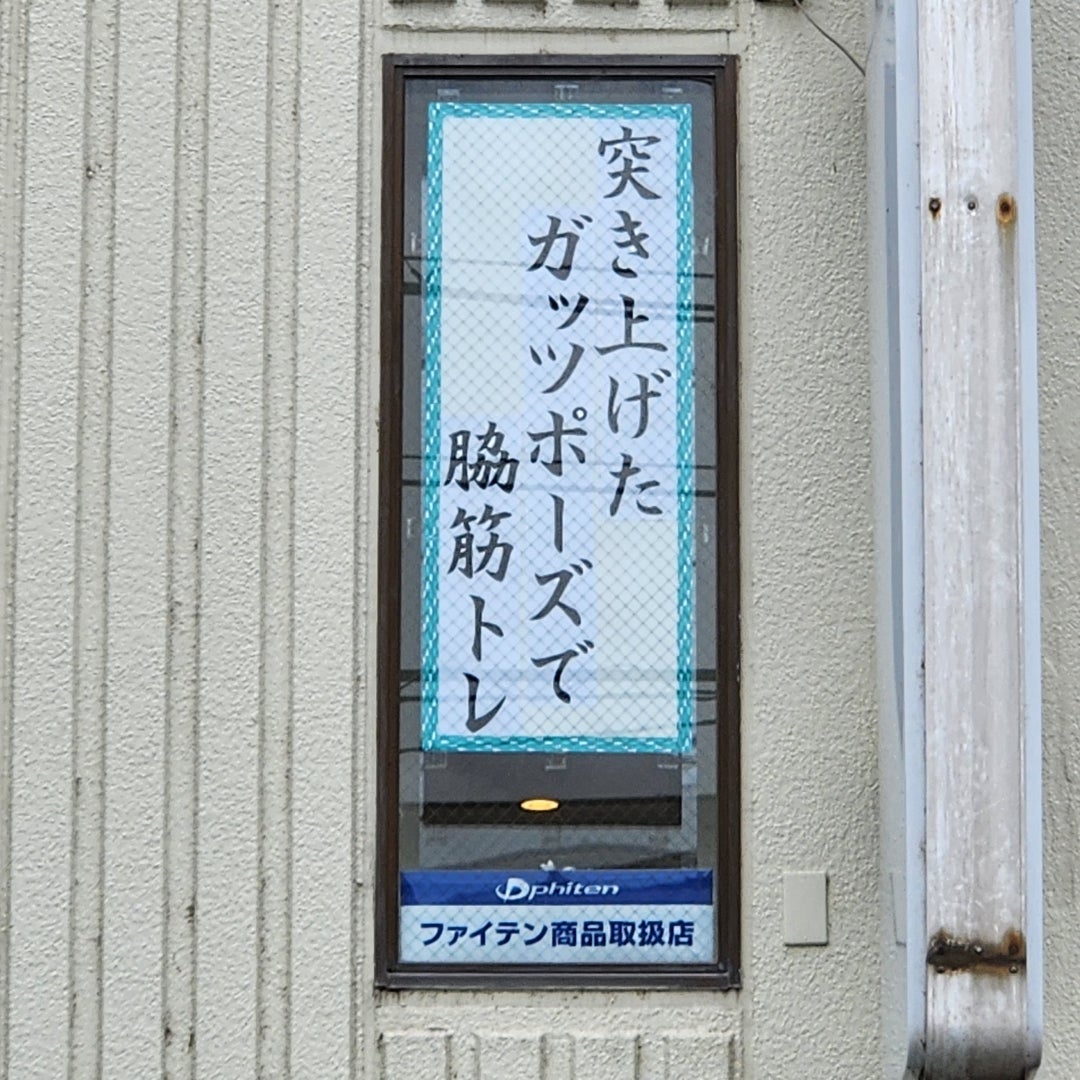 突き上げた
ガッツポーズで
脇筋トレ
phiten
ファイテン商品取扱店